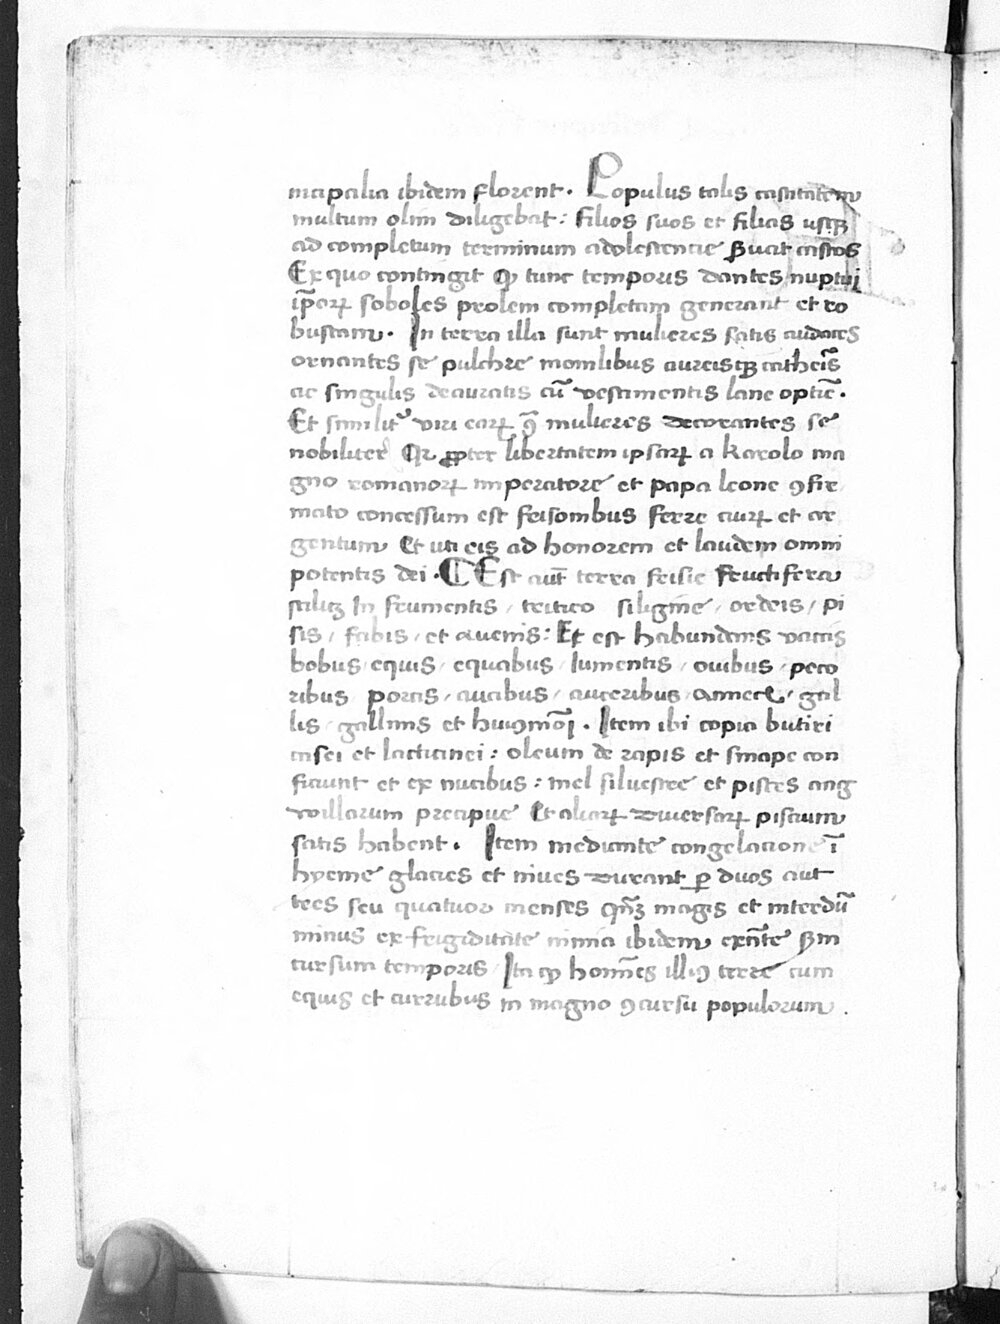 mapalia ibidem florent. Populus talis castitatem
multum olim diligebat: filios suos et filias usqꝫ
ad completum terminum adolescencie ßuat castos
Ex quo contingit ꝙ tunc temporis dantes nuptui
ip̄orꝝ soboles prolem completam generant et ro
bustam. In terra illa sunt mulieres satis audaces
ornantes se pulchre monilibus aureisqꝫ cathei̅s
ac singulis deauratis cū vestimentis lane optīe.
Et similit᷑ viri earꝝ ꝙ̄ mulieres decorantes se
nobiliter Qꝛ ꝓpter libertatem ipsarꝝ a karolo ma
gno romanorꝝ imperatore et papa leone ꝯfir
mato concessum est frisonibus ferre aurꝝ et ar
gentum Et uti eis ad honorem et laudem omni
potentis dei. ¶ Est aut̄ terra frisie fructifera
scilicꝫ In frumentis / tritico siligine / ordeis / pi
sis / fabis / et avenis: Et est habundans vaccis
bobus equis / equabus / Iumentis / ovibus / peco
ribus porcis / aucibus / anceribus / annetꝭ / gal
lis / gallinis et huiꝯmōi. Item ibi copia butiri
casei et lacticinei: oleum de rapis et sinape con
ficiunt et ex nucibus: mel silvestre et pisces ang
willarum precipue Et aliarꝝ diversarꝝ piscium
satis habent. Item mediante congelacione ī
hyeme glacies et nives durant ꝑ duos aut
tres seu quatuor menses qn̄qꝫ magis et interdū
minus ex frigiditate nimia ibidem exn̄te ßm
cursum temporis / Ita ꝙ homīes illiꝯ terre cum
equis et curribus in magno ꝯcursu populorum .